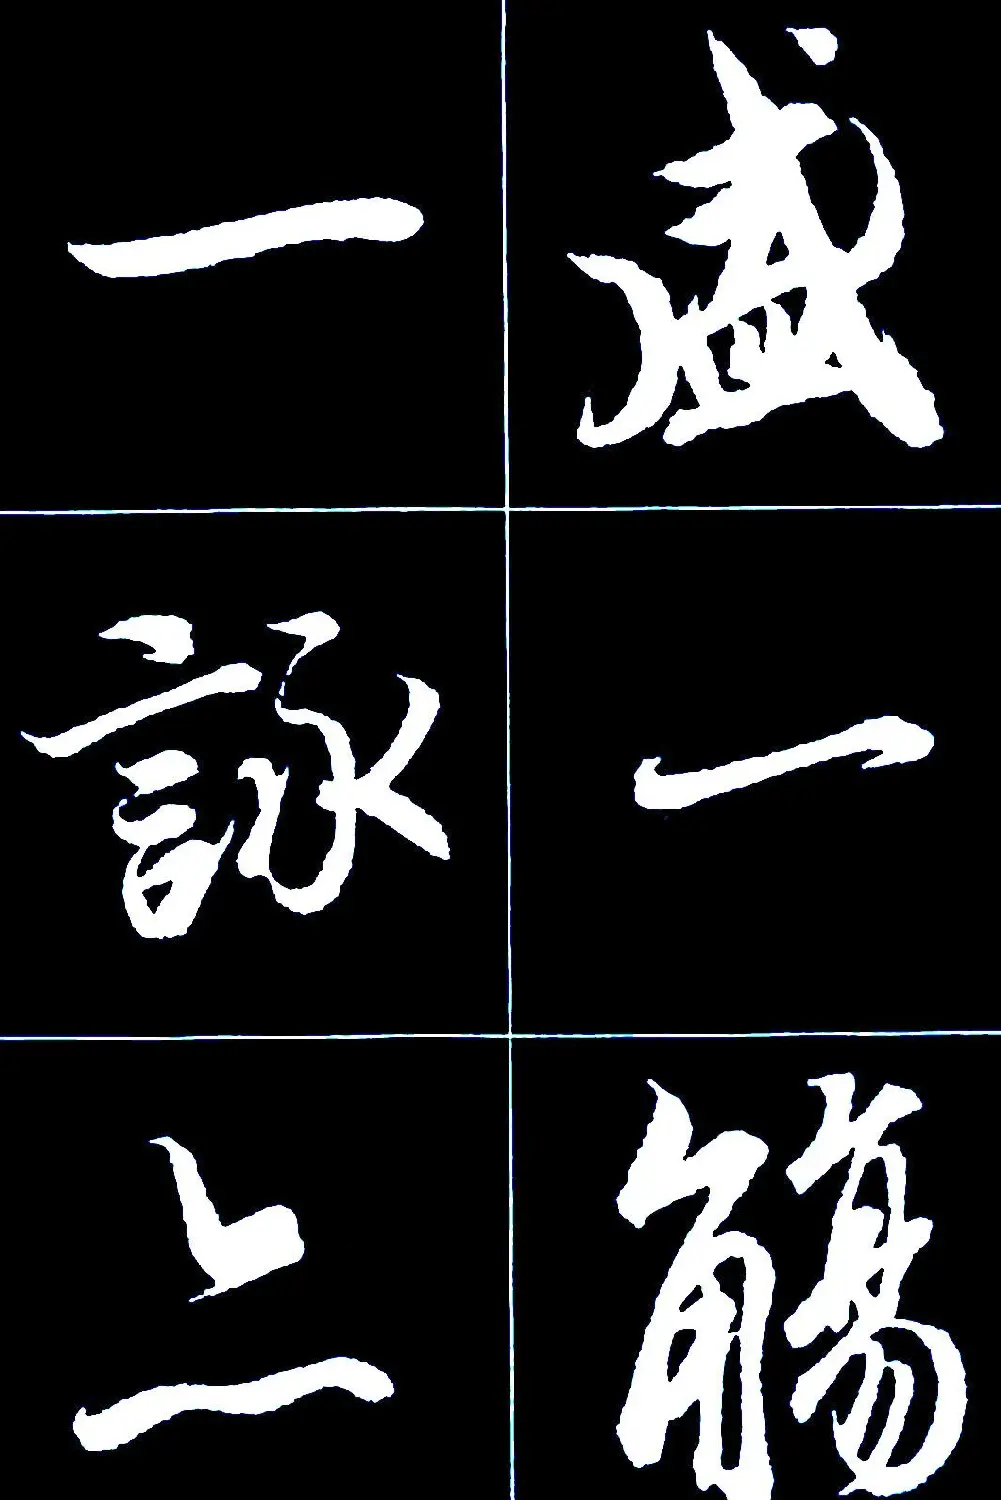 盛一觴
一詠上